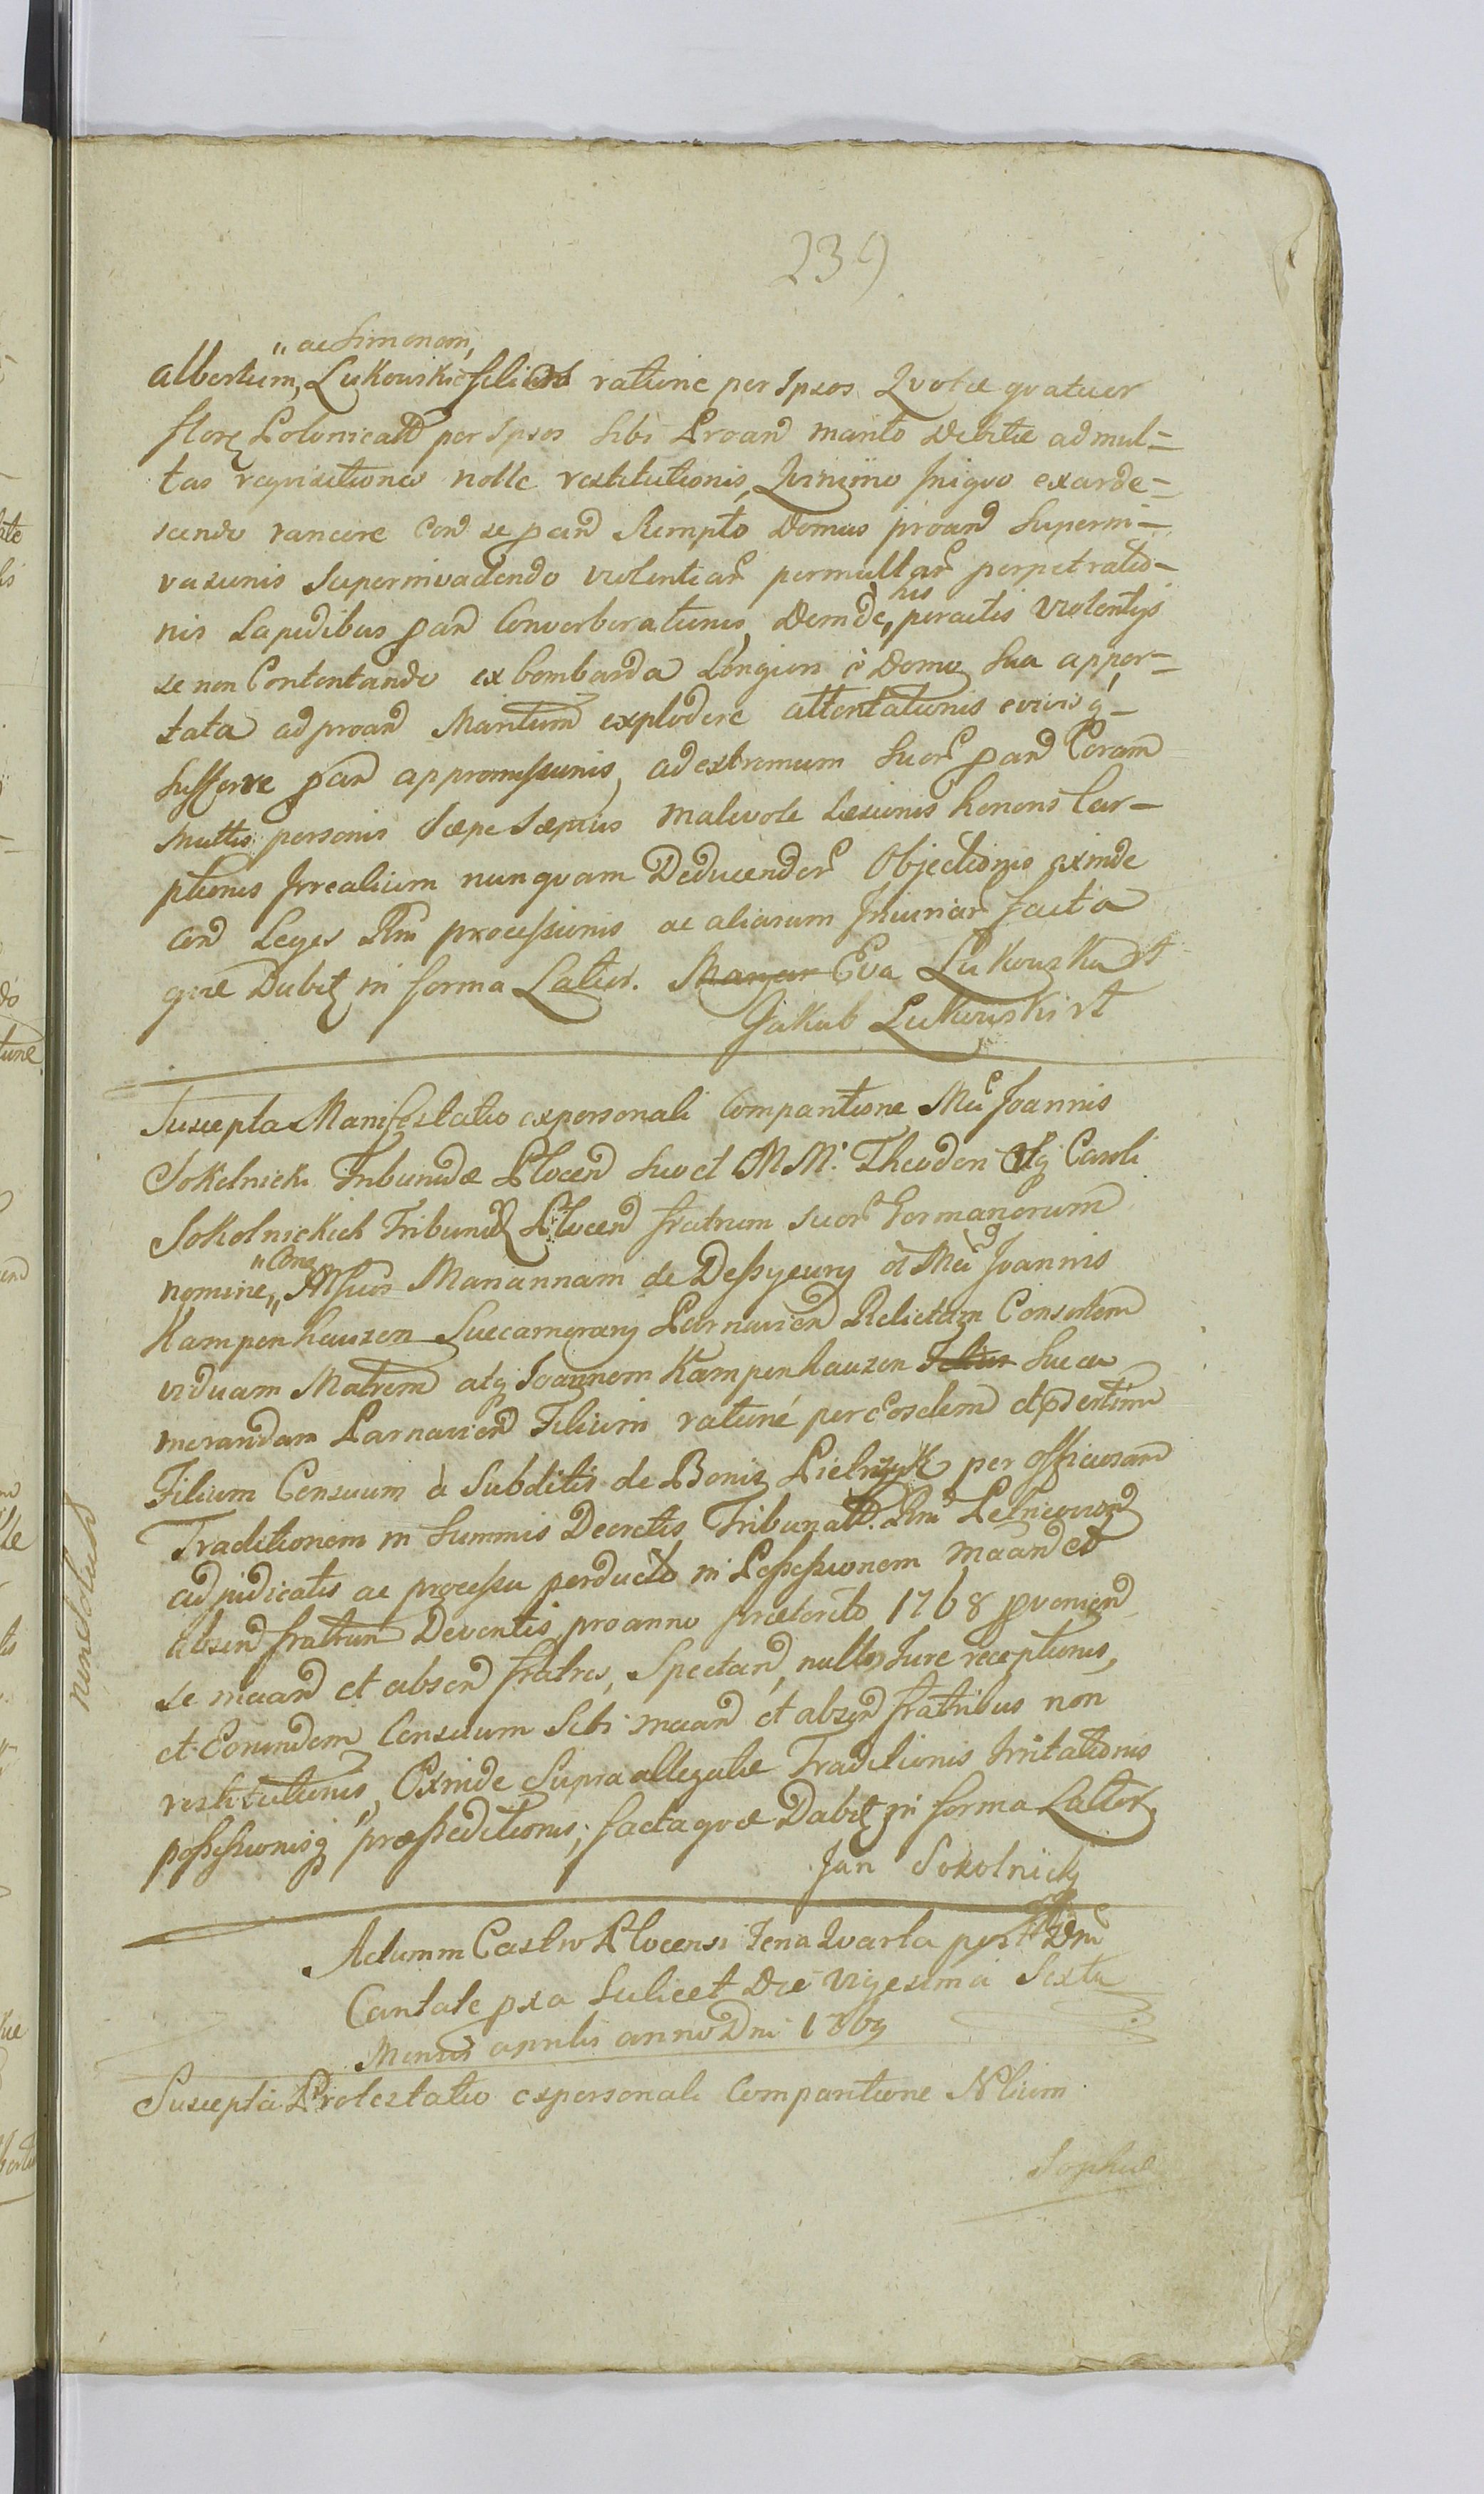 239
„ ac Simonem,
Albertum, Łukowskie filios ratione per Ipsos Quotae quatuor
floren Polonicali per Ipsos Sibi Proand marito Debitae ad mul=
tas requisitiones nolle restitutionis, Quinimo Iniquo exarde=
scendo rancore Cond se pand Rempto Domus proand Superin-
vasionis Superinvadendo violentiar permultar perpetratio-
nis Lapidibus pand Converberationis, Deinde, his peractis violentys
se non Contentando ex bombarda Longiori è Domo Sua appor=
tata ad proand Maritum explodere attentationis
Sufferre pand appromissionis, ad extremum Suor pand Coram
multis personis Saepe Saepius malevole Laesionis honoris Car-
ptionis Irrealium nunquam Deducendor Objectionis exinde
cond Leges Rni processionis ac aliarum Iniuriar facta
quae Dabit in forma Latior. Eva Łukowska rt
Jakub Łukowski rt
Suscepta Manifestatio ex personali Comparitione Mci Joannis
Sokolnicki Tribunidae Plocen suo et M M. Theodori Atq Caroli
Sokolnickich Tribunid Plocen fratrum suor Germanorum
nomine, „Cona Mariannam de olim Mci Joannis
Kampenhauzen Succamerary Parnavien Relictam Consortem
viduam Matrem atq Joannem Kampenhauzen Succa
merandam Parnavien Filium ratione per Eosdem et psertim
Filium Censuum à Subditis de Bonis per officiosam
Traditionem in Summis Decretis Tribunal. Rni
adjudicatis ac processu perducto in Possessionem maand et
absend fratrum Deventis, pro anno praeterito 1768 proveniend
se maand et absend fratres, Spectand, nullo Jure receptionis,
et Eorundem Censuum Sibi maand et absend fratribus non
restitutionis, Exinde Supra allegatae Traditionis Irritationis
possessionisq praepeditionis; facta quae Dabit in forma Latior
Jan Sokolnicki
Actum in Castro Plocensi Feria Quarta post Dnicam
Cantate pxa Scilicet Die vigesima Sexta
Mensis aprilis anno Dni 1769
Suscepta Protestatio ex personali Comparitione Nlium
Sophiae